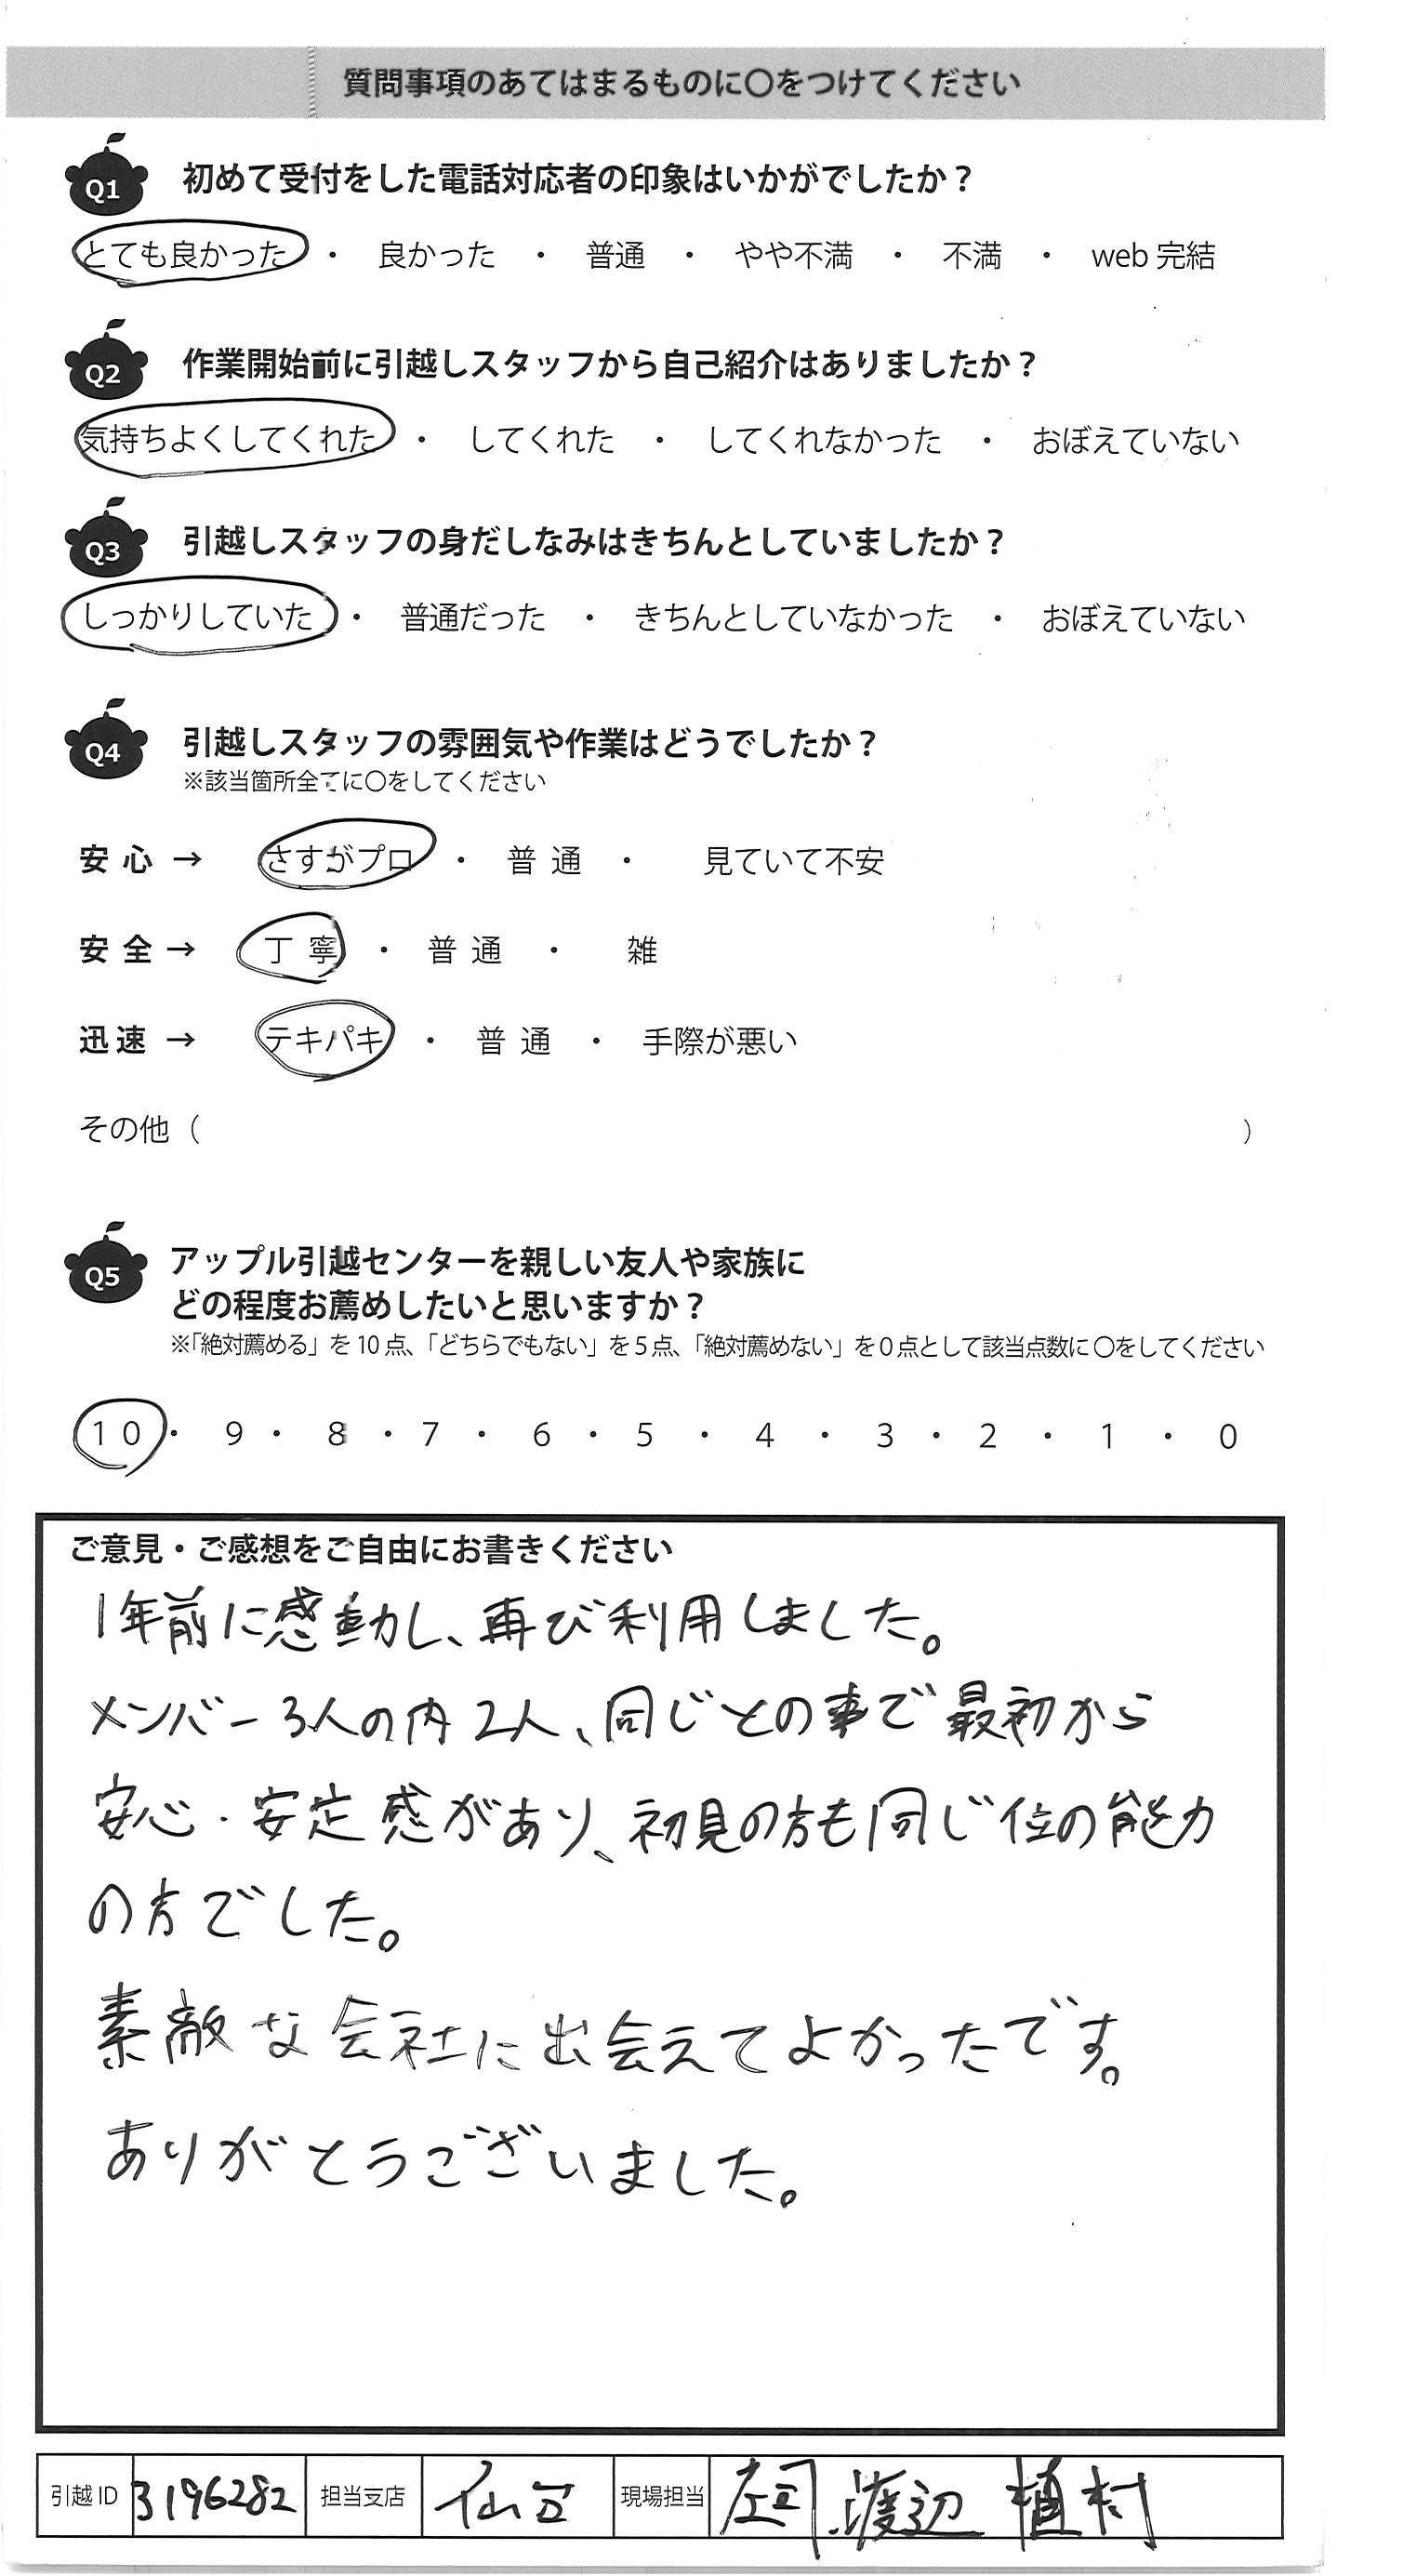 質問事項のあてはまるものに〇をつけてください
Q1 初めて受付をした電話対応者の印象はいかがでしたか？
とても良かった ・ 良かった ・ 普通 ・ やや不満 ・ 不満 ・ web 完結
Q2 作業開始前に引越しスタッフから自己紹介はありましたか？
気持ちよくしてくれた ・ してくれた ・ してくれなかった ・ おぼえていない
Q3 引越しスタッフの身だしなみはきちんとしていましたか？
しっかりしていた ・ 普通だった ・ きちんとしていなかった ・ おぼえていない
Q4 引越しスタッフの雰囲気や作業はどうでしたか？
※該当箇所全てに〇をしてください
安心 → さすがプロ ・ 普通 ・ 見ていて不安
安全 → 丁寧 ・ 普通 ・ 雑
迅速 → テキパキ ・ 普通 ・ 手際が悪い
その他（ ）
Q5 アップル引越センターを親しい友人や家族に
どの程度お薦めしたいと思いますか？
※「絶対薦める」を 10 点、「どちらでもない」を 5 点、「絶対薦めない」を 0 点として該当点数に 〇をしてください
10 ・ 9 ・ 8 ・ 7 ・ 6 ・ 5 ・ 4 ・ 3 ・ 2 ・ 1 ・ 0
ご意見・ご感想をご自由にお書きください
1年前に感動し、再び利用しました。
メンバー3人の内2人、同じとの事で最初から
安心・安定感があり、初見の方も同じ位の能力
の方でした。
素敵な会社に出会えてよかったです。
ありがとうございました。
引越 ID 3196282 担当支店 仙台 現場担当 渡辺 植村